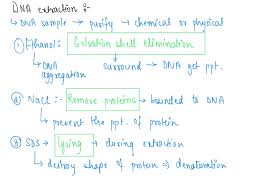 DNA extraction :-
↳ DNA sample → purify → chemical or physical
① Ethanol: Solvation shell elimination
↳ DNA aggregation surround → DNA get ppt.
② NaCl :- Remove proteins → bounded to DNA
↳ prevent the ppt. of protein
③ SDS → lysing → during extraction
↳ destroy shape of protein ⇒ denaturation